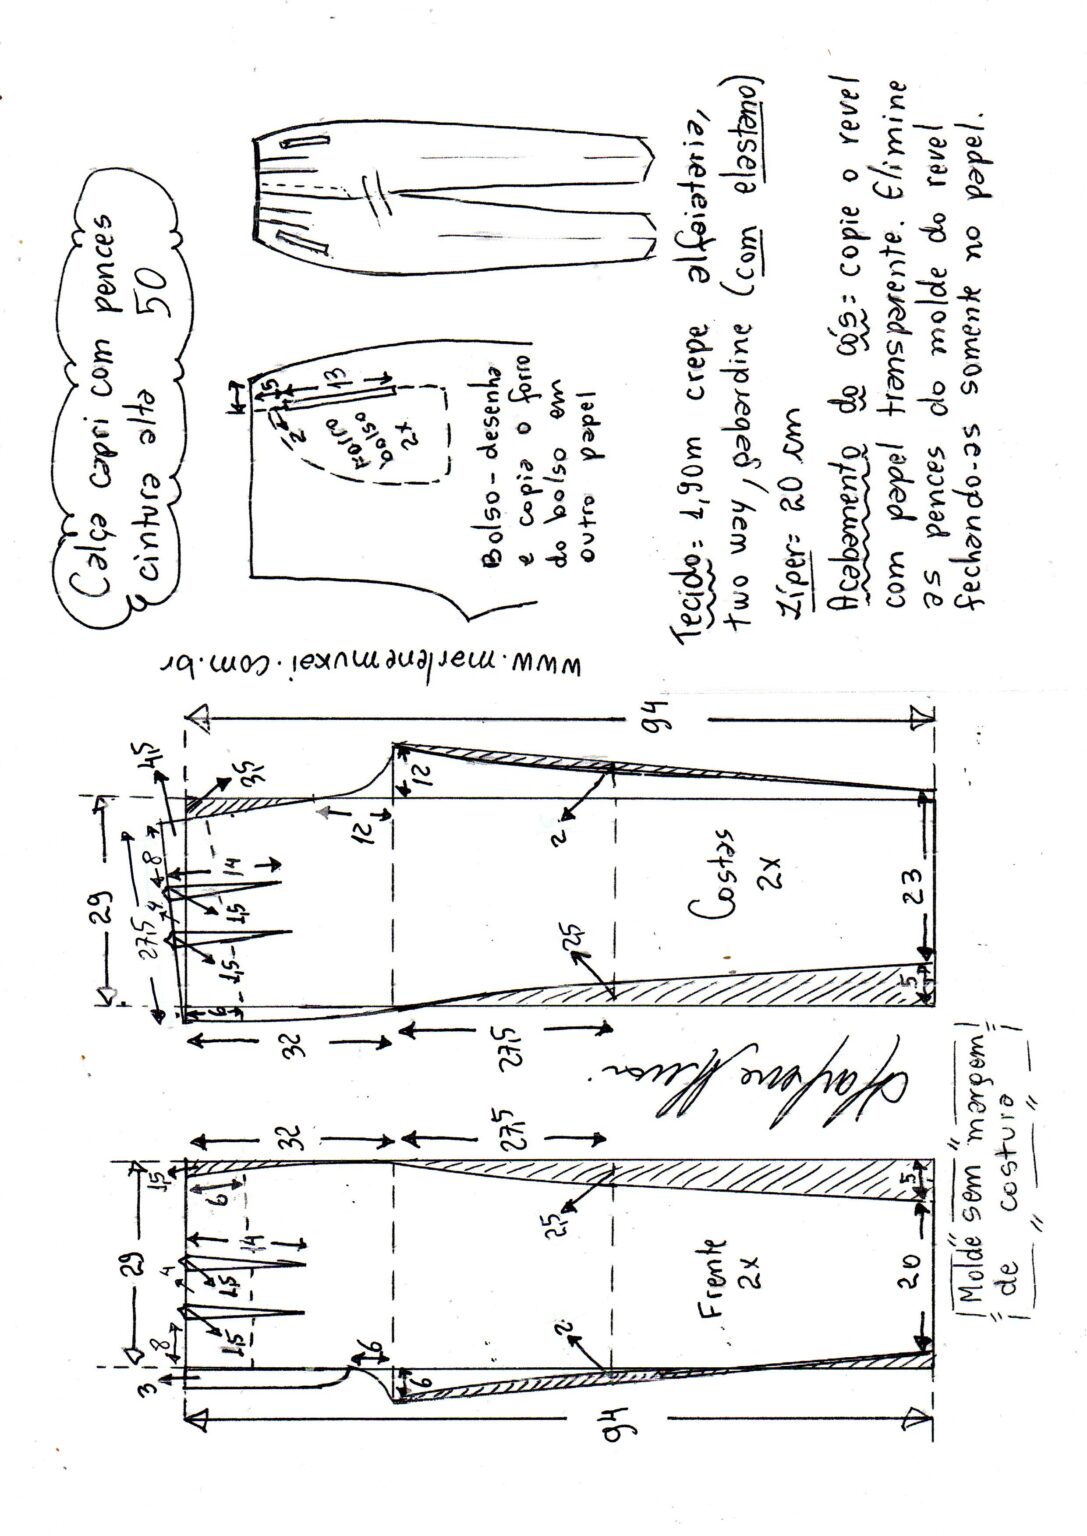 Calça capri com pences
cintura alta 50
5
13
2
Forro
bolso
2x
Bolso - desenha
e copia o forro
do bolso em
outro papel
Tecido = 1,90m crepe alfaiataria,
two way, gabardine (com elastano)
Zíper = 20 cm
Acabamento do cós = copie o revel
com papel transparente. Elimine
as pences do molde do revel
fechando-as somente no papel.
www.marlenemukai.com.br
29
27,5
4,5
3,5
8
4
14
1,5
1,5
6
32
27,5
12
12
2
2,5
Costas
2x
23
5
94
29
3
8
4
1,5
1,5
14
6
1,5
32
27,5
6
6
2
2,5
Frente
2x
20
5
94
Molde sem margem
de costura